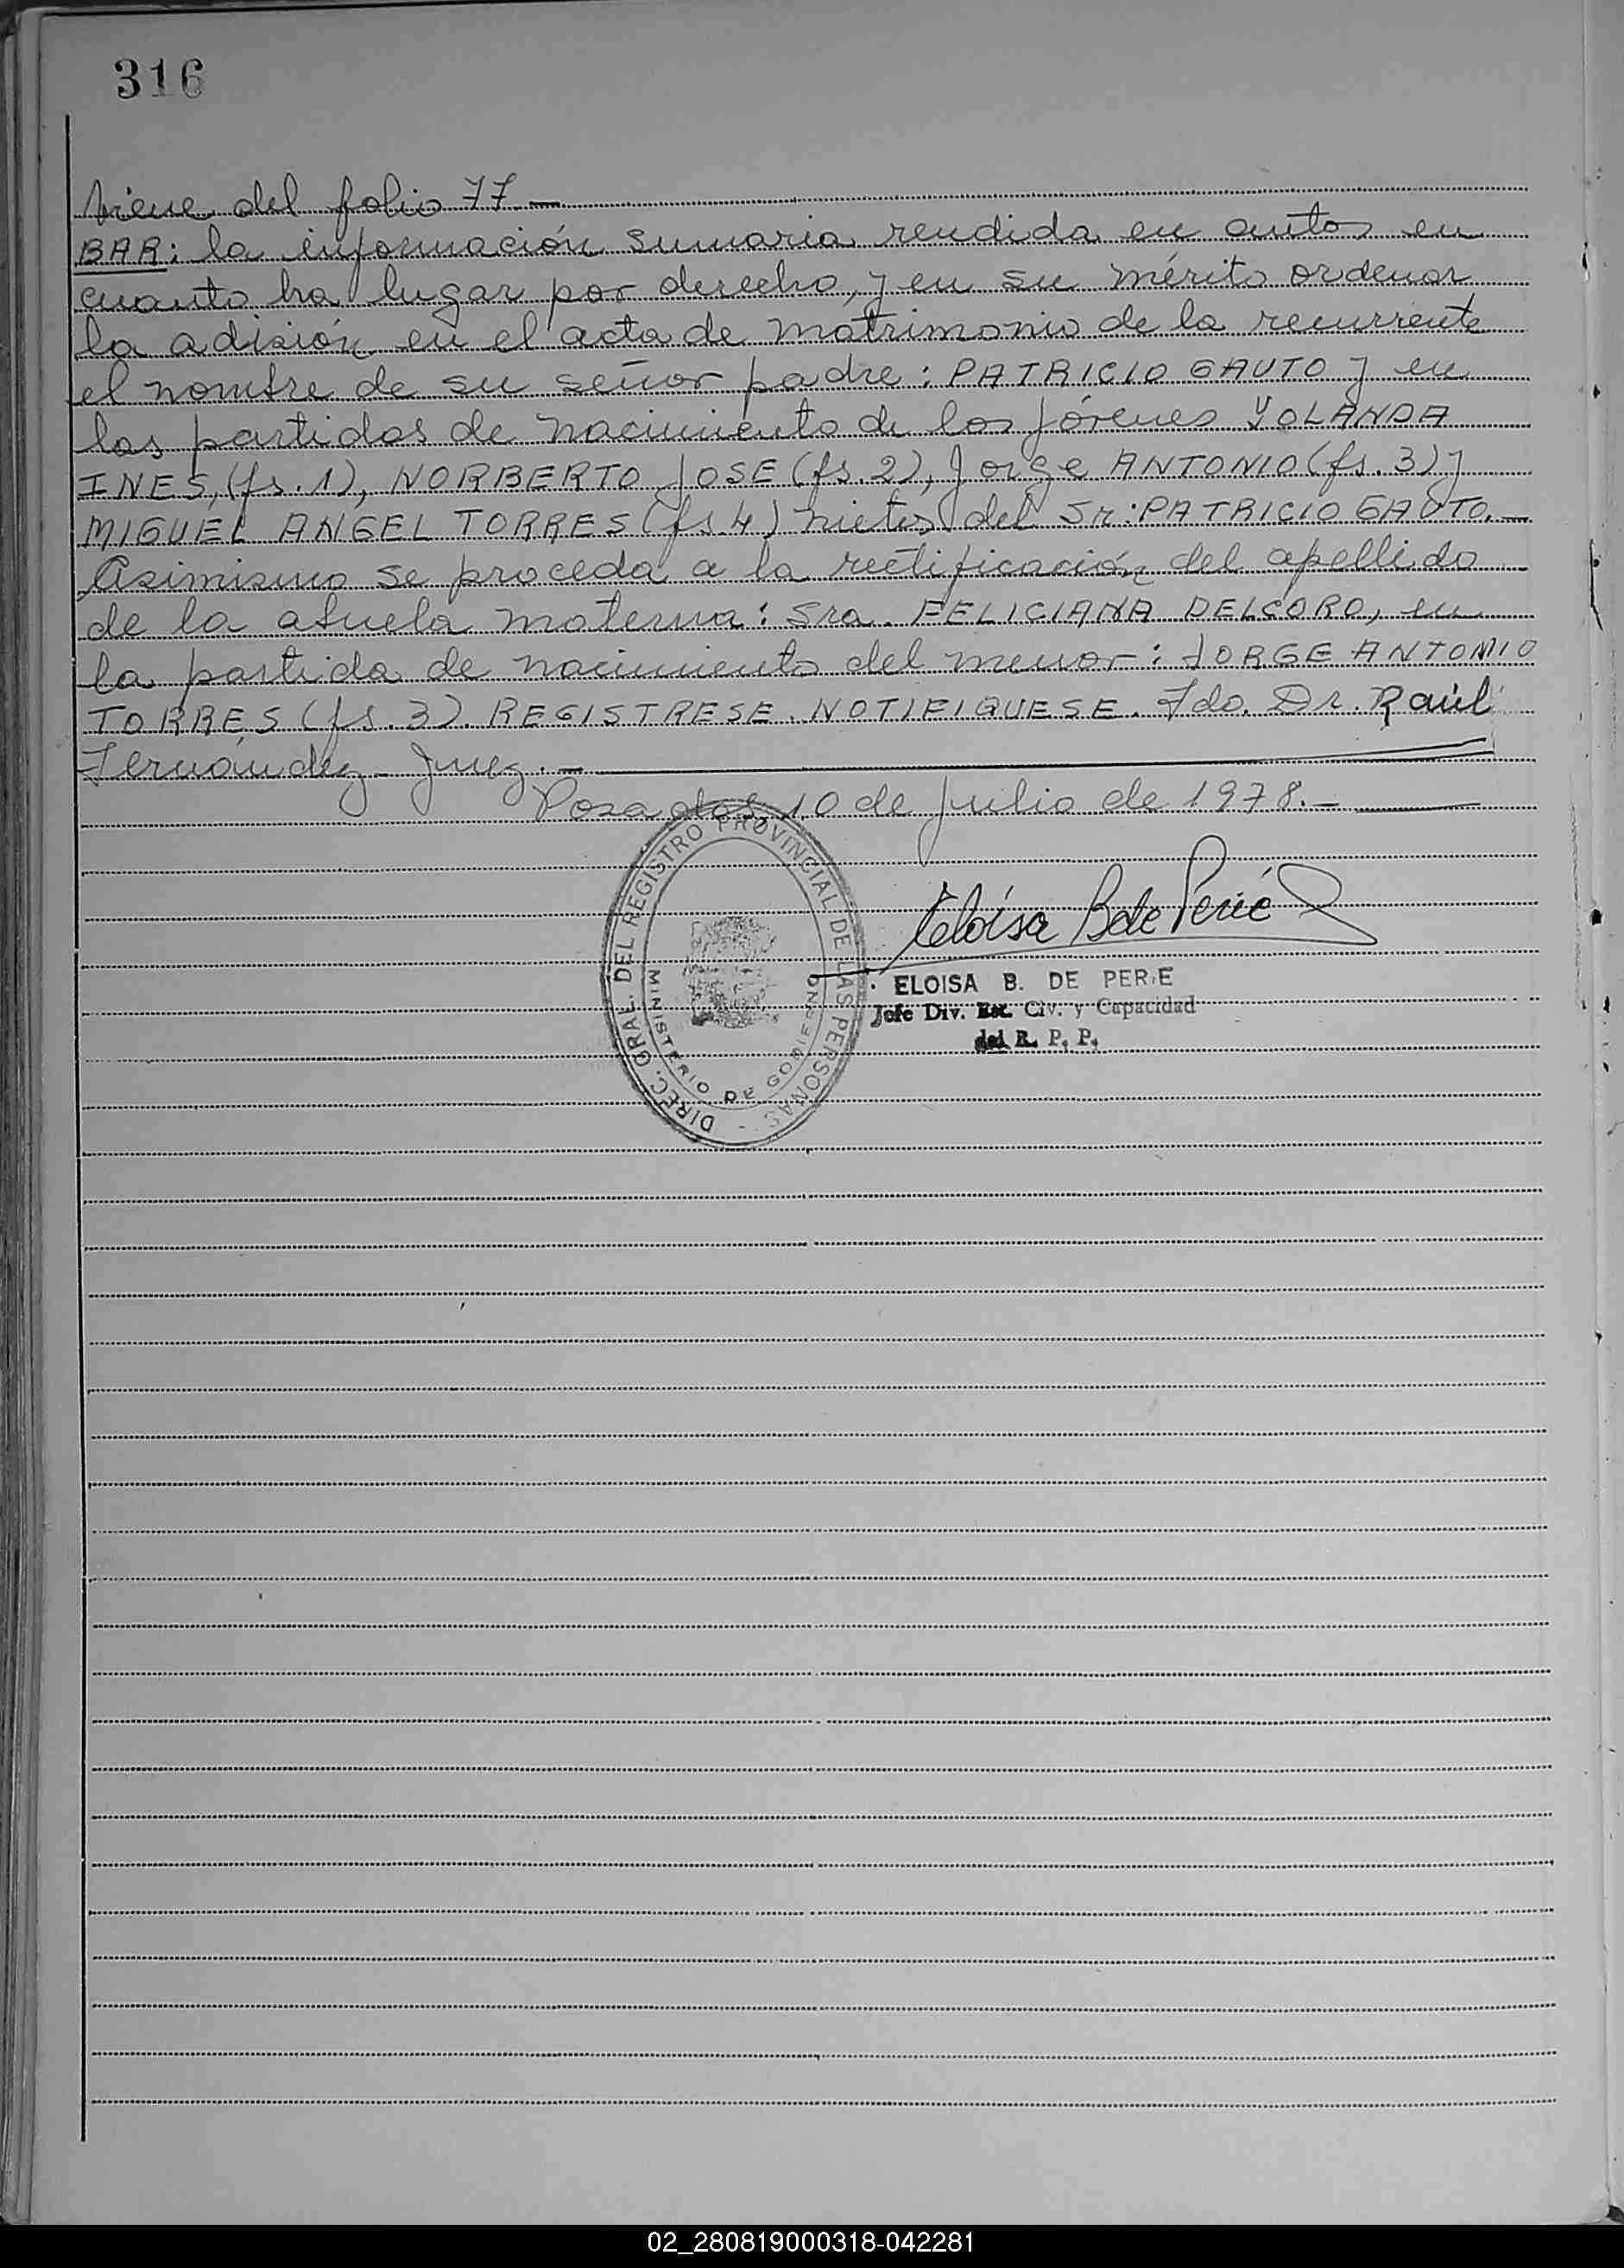 316
viene del folio 77.—
BAR: la información sumaria rendida en autos en
cuanto ha lugar por derecho, y en su mérito ordenar
la adisión en el acta de matrimonio de la recurrente
el nombre de su señor padre: PATRICIO GAUTO y en
las partidas de nacimiento de los jóvenes YOLANDA
INES, (fs. 1), NORBERTO JOSE (fs. 2), Jorge ANTONIO (fs. 3) y
MIGUEL ANGEL TORRES (fs. 4) nietos del Sr: PATRICIO GAUTO.—
Asimismo se proceda a la rectificación del apellido
de la abuela materna: Sra. FELICIANA DELCORO, en
la partida de nacimiento del menor: JORGE ANTONIO
TORRES (fs. 3). REGISTRESE. NOTIFIQUESE. Fdo. Dr. Raúl
Fernández - Juez.—
Posadas, 10 de Julio de 1978.—
DIREC. GRAL. DEL REGISTRO PROVINCIAL DE LAS PERSONAS -
MINISTERIO DE GOBIERNO
Eloísa B de Perié
ELOISA B. DE PERIE
Jefe Div. Civ. y Capacidad
del R. P. P.
02_280819000318-042281